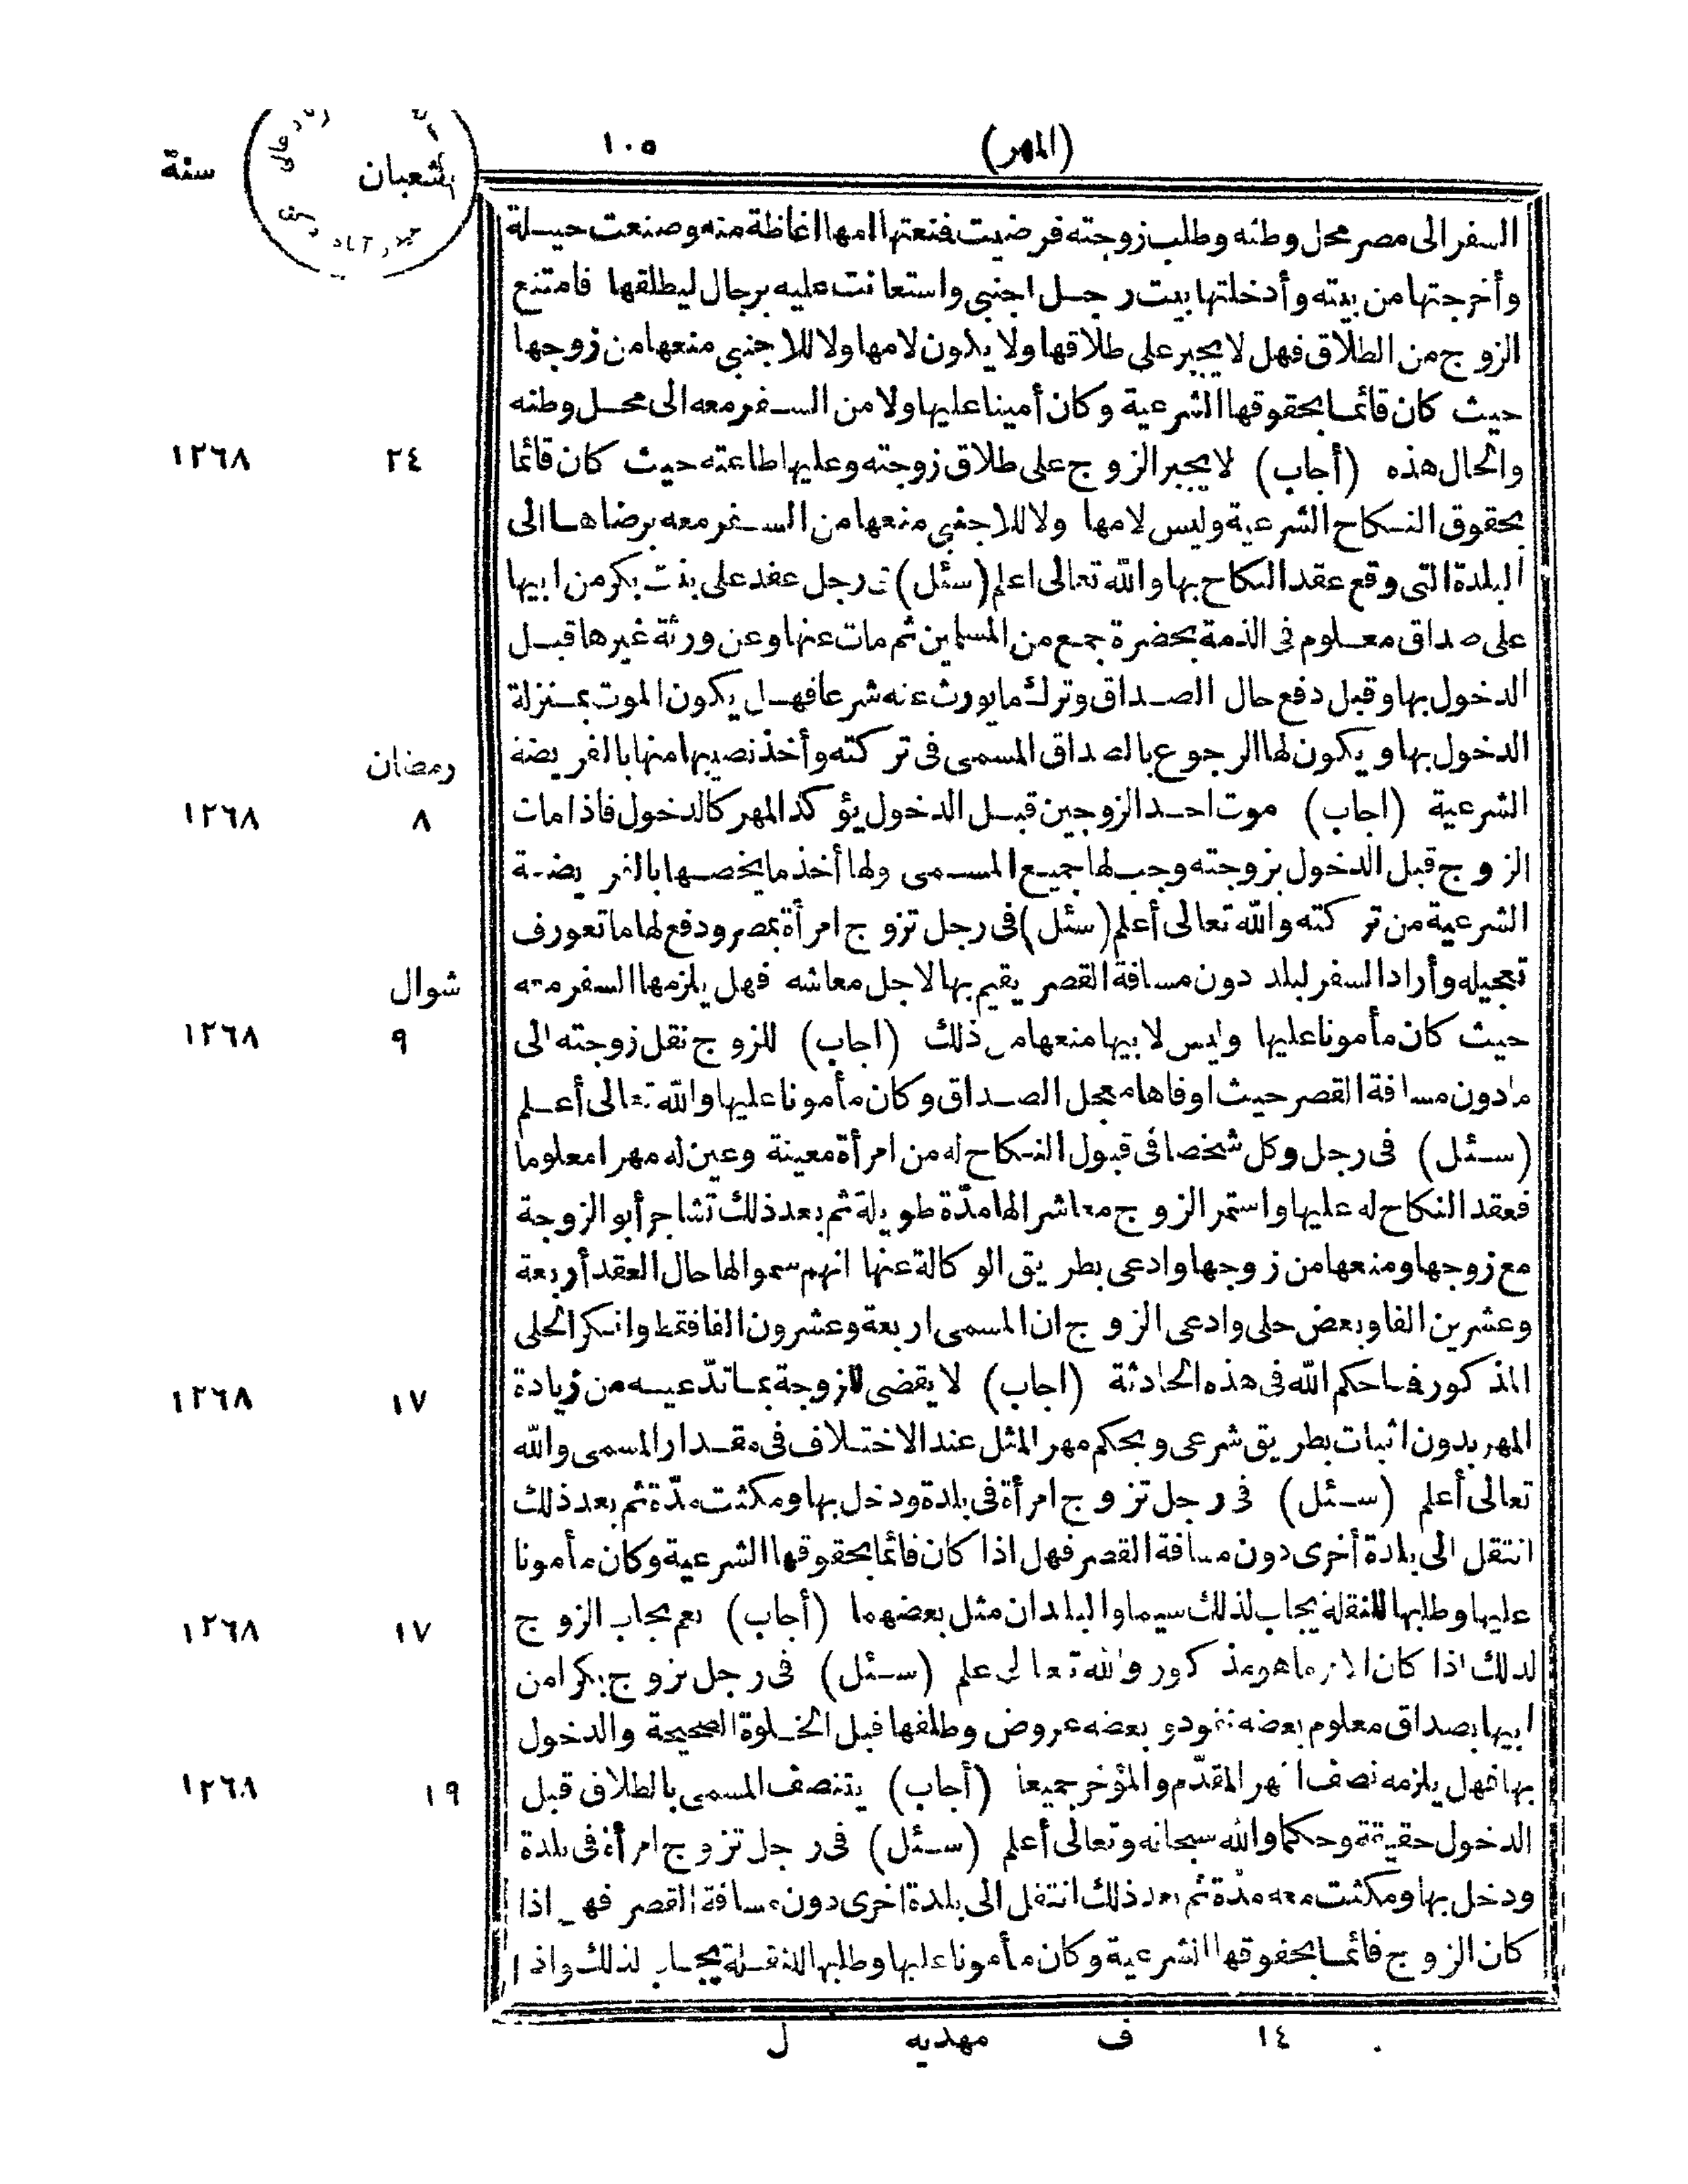 (المهر) ١٠٥ شعبان سنة
السفر الى مصر محل وطنه وطلب زوجته فرضيت فمنعتها امها اغاظة منه وصنعت حيلة
وأخرجتها من بيته وأدخلتها بيت رجل اجنبى واستعانت عليه برجال ليطلقها فامتنع
الزوج من الطلاق فهل لا يجبر على طلاقها ولا يكون لامها ولا للاجنبى منعها من زوجها
حيث كان قائما بحقوقها الشرعية وكان أمينا عليها ولا من السفر معه الى محل وطنه
والحال هذه (أجاب) لا يجبر الزوج على طلاق زوجته وعليها اطاعته حيث كان قائما ٢٤ ١٢٦٨
بحقوق النكاح الشرعية وليس لامها ولا للاجنبى منعها من السفر معه برضاها الى
البلدة التى وقع عقد النكاح بها والله تعالى اعلم (سئل) فى رجل عقد على بنت بكر من ابيها
على صداق معلوم فى الذمة بحضرة جمع من المسلمين ثم مات عنها وعن ورثة غيرها قبل
الدخول بها وقبل دفع حال الصداق وترك ما يورث عنه شرعا فهل يكون الموت بمنزلة
الدخول بها ويكون لها الرجوع بالصداق المسمى فى تركته وأخذ نصيبها منها بالفريضة رمضان
الشرعية (اجاب) موت احد الزوجين قبل الدخول يؤكد المهر كالدخول فاذا مات ٨ ١٢٦٨
الزوج قبل الدخول بزوجته وجب لها جميع المسمى ولها أخذ ما يخصها بالفريضة
الشرعية من تركته والله تعالى أعلم (سئل) فى رجل تزوج امرأة بمصر ودفع لها ما تعورف
تعجيله وأراد السفر لبلد دون مسافة القصر يقيم بها لاجل معاشه فهل يلزمها السفر معه شوال
حيث كان مأمونا عليها وليس لابيها منعها من ذلك (اجاب) للزوج نقل زوجته الى ٩ ١٢٦٨
مادون مسافة القصر حيث اوفاها معجل الصداق وكان مأمونا عليها والله تعالى أعلم
(سئل) فى رجل وكل شخصا فى قبول النكاح له من امرأة معينة وعين له مهرا معلوما
فعقد النكاح له عليها واستمر الزوج معاشر الها مدّة طويلة ثم بعد ذلك تشاجر أبو الزوجة
مع زوجها ومنعها من زوجها وادعى بطريق الوكالة عنها انهم سموا لها حال العقد أربعة
وعشرين الفا وبعض حلى وادعى الزوج ان المسمى اربعة وعشرون الفا فقط وانكر الحلى
المذكور فما حكم الله فى هذه الحادثة (اجاب) لا يقضى للزوجة بما تدّعيه من زيادة ١٧ ١٢٦٨
المهر بدون اثبات بطريق شرعى ويحكم مهر المثل عند الاختلاف فى مقدار المسمى والله
تعالى أعلم (سئل) فى رجل تزوج امرأة فى بلدة ودخل بها ومكثت مدّة ثم بعد ذلك
انتقل الى بلدة أخرى دون مسافة القصر فهل اذا كان قائما بحقوقها الشرعية وكان مأمونا
عليها وطلبها للنقلة يجاب لذلك سيما والبلدان مثل بعضهما (أجاب) نعم يجاب الزوج ١٧ ١٢٦٨
لذلك اذا كان الامر ما هو مذكور والله تعالى اعلم (سئل) فى رجل تزوج بكرا من
ابيها بصداق معلوم بعضه نقود وبعضه عروض وطلقها قبل الخلوة الصحيحة والدخول
بها فهل يلزمه نصف المهر المقدّم والمؤخر جميعا (أجاب) يتنصف المسمى بالطلاق قبل ١٩ ١٢٦٨
الدخول حقيقة وحكما والله سبحانه وتعالى أعلم (سئل) فى رجل تزوج امرأة فى بلدة
ودخل بها ومكثت معه مدّة ثم بعد ذلك انتقل الى بلدة اخرى دون مسافة القصر فهل اذا
كان الزوج قائما بحقوقها الشرعية وكان مأمونا عليها وطلبها للنقلة يجاب لذلك واذا
١٤ ف مهديه ل